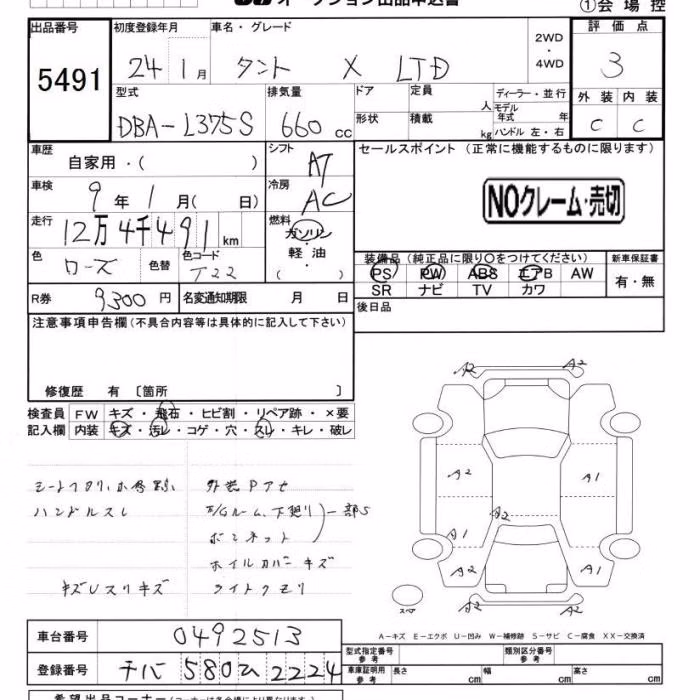 オークション出品申込書 ①会場控
出品番号 初度登録年月 車名・グレード 2WD ・ 4WD 評価点
5491 24 1月 タント X LTD 3
型式 排気量 ドア 定員 人 ディーラー・並行 外装 内装
DBA-L375S 660cc 形状 積載 kg モデル年式 年 ハンドル 左・右 C C
車歴 自家用・( ) シフト AT セールスポイント (正常に機能するものに限ります)
車検 9年 1月( 日) 冷房 AC NOクレーム・売切
走行 12万4千491km 燃料 ガソリン・軽油 ( )
色 ローズ 色替 色コード T22 装備品(純正品に限り○をつけてください) 新車保証書
PS PW ABS エアB AW 有・無
SR ナビ TV カワ
R券 9300円 名変通知期限 月 日 後日品
注意事項申告欄(不具合内容等は具体的に記入して下さい)
修復歴 有 〔箇所 〕
検査員 FW キズ・飛石・ヒビ割・リペア跡・×要
記入欄 内装 キズ・汚レ・コゲ・穴・スレ・キレ・破レ
外装Pアセ
ハンドルスレ F/Gルーム、下廻リ 一部S
ボンネット
ホイルカバーキズ
キズUスリキズ ライトクモリ
A2 A2
A2 A1
A2
A1
A2 A1
A2 A2
スペア
A-キズ E-エクボ U-凹み W-補修跡 S-サビ C-腐食 XX-交換済
車台番号 0492513 型式指定番号 参考 類別区分番号 参考
登録番号 チバ 580ひ2224 車庫証明用 参考 長さ cm 幅 cm 高さ cm
希望出品コーナー